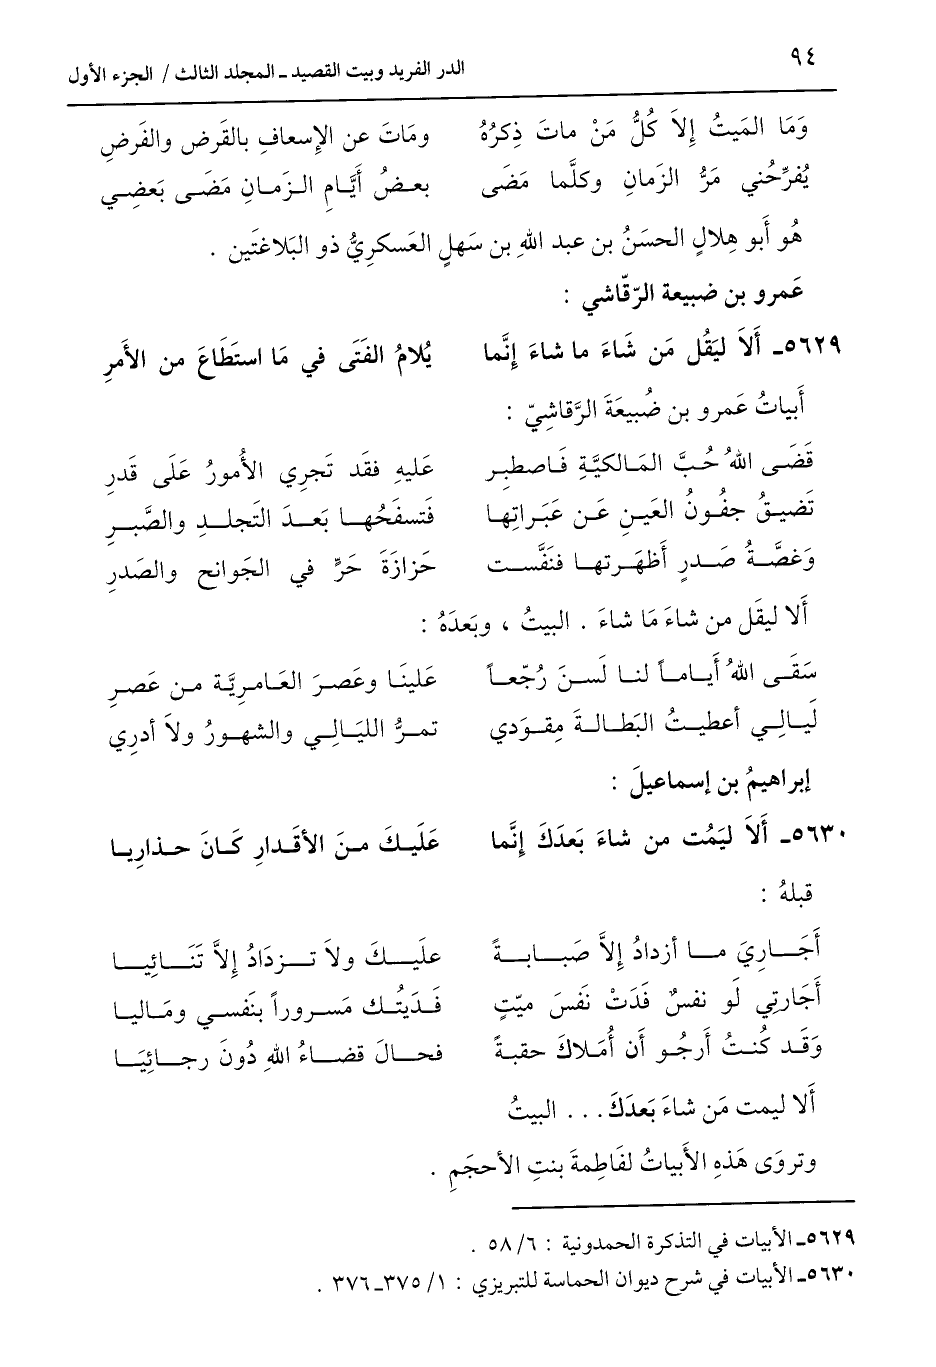 ٩٤
الدر الفريد وبيت القصيد ـ المجلد الثالث / الجزء الأول
وَمَا المَيتُ إِلاَ كُلُّ مَنْ ماتَ ذِكرُهُ ومَاتَ عن الإِسعافِ بالقَرضِ والفَرضِ
يُفرِّحُني مَرُّ الزمَانِ وكلَّما مَضَى بعضُ أَيَّامِ الزمَانِ مَضَى بَعضِي
هُو أَبو هِلالٍ الحسَنُ بن عبد اللهِ بن سَهلٍ العَسكرِيُّ ذو البَلاغَتَين .
عَمرو بن ضبيعة الرّقّاشي :
٥٦٢٩ـ أَلاَ لِيَقُل مَن شَاءَ ما شاءَ إِنَّما يُلامُ الفَتَى في مَا استَطَاعَ من الأَمرِ
أَبياتُ عَمرو بن ضُبيعَةَ الرَّقاشِيّ :
قَضَى اللهُ حُبَّ المَالكيَّةِ فَاصطبِر عَليهِ فقَد تَجرِي الأُمورُ عَلَى قَدرِ
تَضيقُ جفُونُ العَينِ عَن عَبَراتِها فَتسفَحُها بَعدَ التَجلدِ والصَّبرِ
وَغصَّةُ صَدرٍ أَظهَرتها فنَفَّست حَزازَةَ حَرٍّ في الجَوانحِ والصَدرِ
أَلا ليقَل من شاءَ مَا شاءَ . البيتُ ، وبَعدَهُ :
سَقَى اللهُ أَيَاماً لنا لَسنَ رُجّعاً علَينَا وعَصرَ العَامريَّة من عَصرِ
لَيالِي أعطَيتُ البَطالةَ مِقوَدي تمرُّ الليَالِي والشهورُ ولاَ أدرِي
إبراهيمُ بن إسماعيلَ :
٥٦٣٠ـ أَلاَ ليَمُت من شاءَ بَعدَكَ إنَّما عَلَيكَ منَ الأَقدارِ كَانَ حذارِيا
قبلهُ :
أَجَارِيَ ما أزدادُ إلاَّ صَبابةً علَيكَ ولاَ تزدَادُ إلاَّ تَنَائِيا
أَجَارتِي لَو نفسٌ فَدَتْ نفَسَ ميّتٍ فَديتُك مَسروراً بنَفسي ومَاليا
وَقَد كُنتُ أَرجُو أَن أُمَلاكَ حقبةً فحالَ قضاءُ اللهِ دُونَ رجائيَا
أَلا ليمت مَن شاءَ بَعدَكَ . . . البيتُ
وتروَى هَذهِ الأَبياتُ لفَاطِمةَ بنتِ الأحجَمِ .
٥٦٢٩ـ الأبيات في التذكرة الحمدونية : ٦/ ٥٨ .
٥٦٣٠ـ الأبيات في شرح ديوان الحماسة للتبريزي : ١/ ٣٧٥ـ ٣٧٦ .